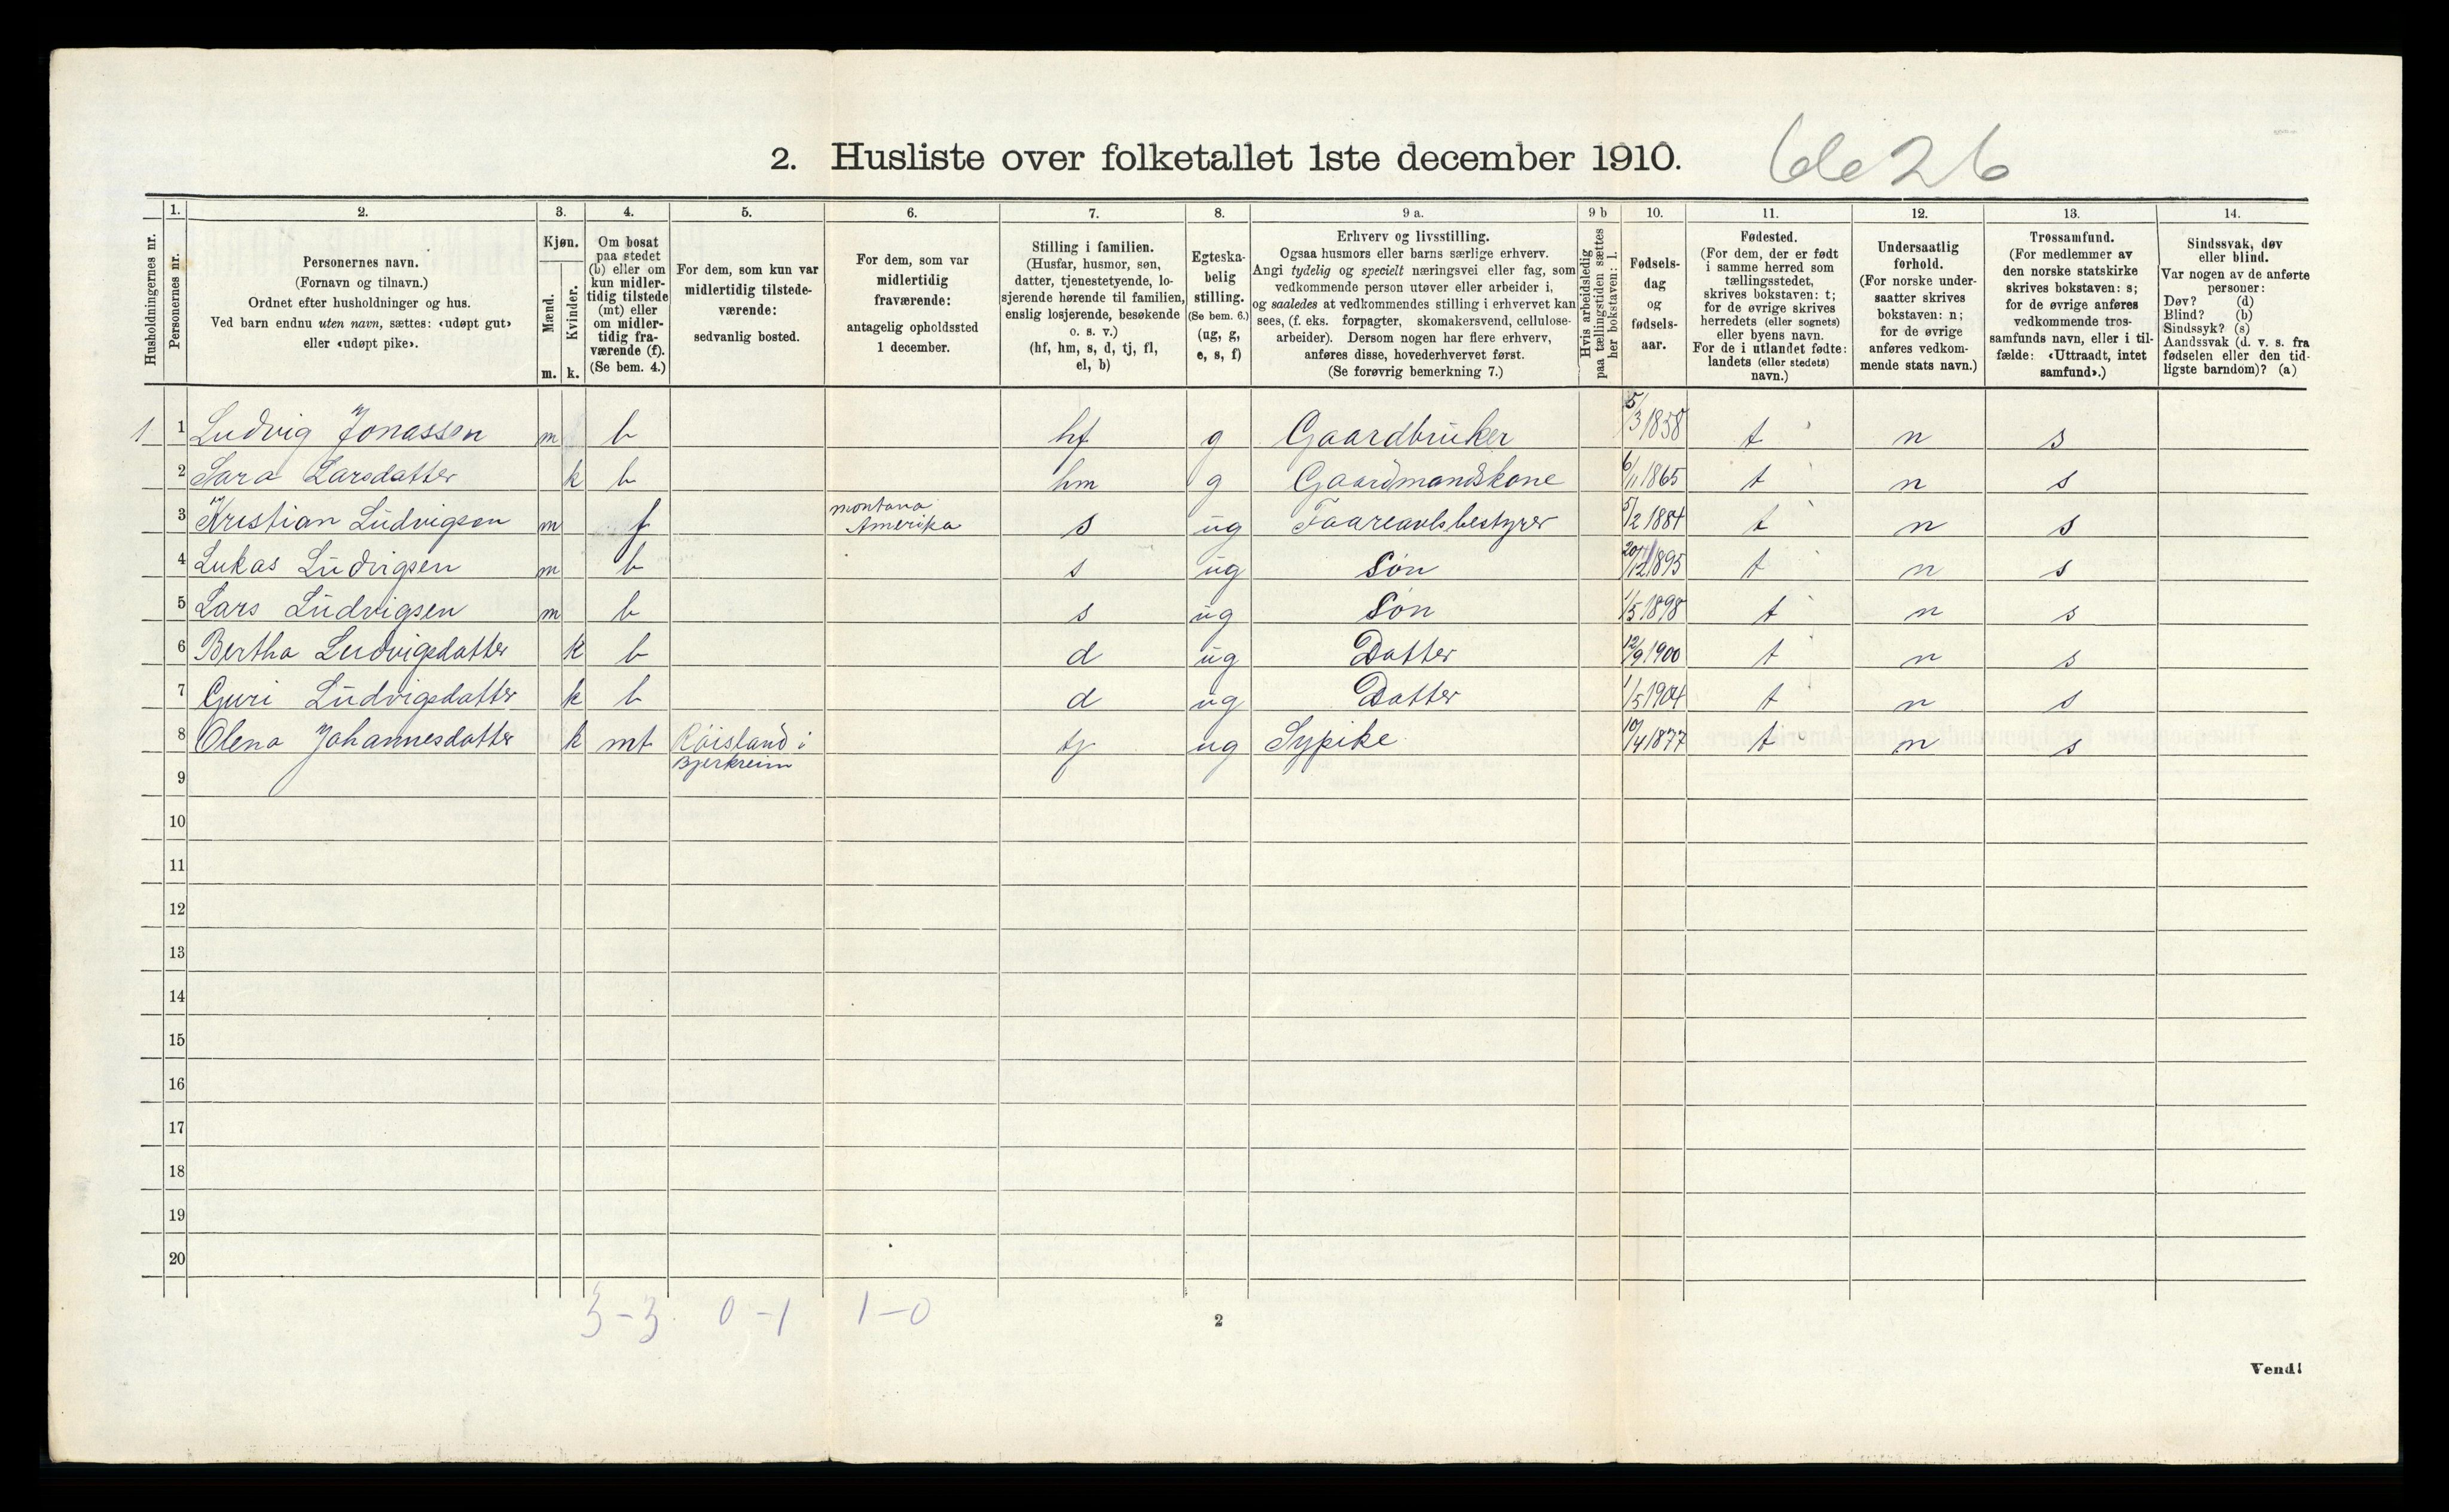 2. Husliste over folketallet 1ste december 1910.
1. 2. 3. 4. 5. 6. 7. 8. 9 a. 9 b 10. 11. 12. 13. 14.
Husholdningernes nr.
Personernes nr.
Personernes navn.
(Fornavn og tilnavn.)
Ordnet efter husholdninger og hus.
Ved barn endnu uten navn, sættes: «udøpt gut»
eller «udøpt pike».
Kjøn.
Mænd.
Kvinder.
m. k.
Om bosat
paa stedet
(b) eller om
kun midler-
tidig tilstede
(mt) eller
om midler-
tidig fra-
værende (f).
(Se bem. 4.)
For dem, som kun var
midlertidig tilstede-
værende:
sedvanlig bosted.
For dem, som var
midlertidig
fraværende:
antagelig opholdssted
1 december.
Stilling i familien.
(Husfar, husmor, søn,
datter, tjenestetyende, lo-
sjerende hørende til familien,
enslig losjerende, besøkende
o. s. v.)
(hf, hm, s, d, tj, fl,
el, b)
Egteska-
belig
stilling.
(Se bem. 6.)
(ug, g,
e, s, f)
Erhverv og livsstilling.
Ogsaa husmors eller barns særlige erhverv.
Angi tydelig og specielt næringsvei eller fag, som
vedkommende person utøver eller arbeider i,
og saaledes at vedkommendes stilling i erhvervet kan
sees, (f. eks. forpagter, skomakersvend, cellulose-
arbeider). Dersom nogen har flere erhverv,
anføres disse, hovederhvervet først.
(Se forøvrig bemerkning 7.)
Hvis arbeidsledig
paa tællingstiden sættes
her bokstaven: l.
Fødsels-
dag
og
fødsels-
aar.
Fødested.
(For dem, der er født
i samme herred som
tællingsstedet,
skrives bokstaven: t;
for de øvrige skrives
herredets (eller sognets)
eller byens navn.
For de i utlandet fødte:
landets (eller stedets)
navn.)
Undersaatlig
forhold.
(For norske under-
saatter skrives
bokstaven: n;
for de øvrige
anføres vedkom-
mende stats navn.)
Trossamfund.
(For medlemmer av
den norske statskirke
skrives bokstaven: s;
for de øvrige anføres
vedkommende tros-
samfunds navn, eller i til-
fælde: «Uttraadt, intet
samfund».)
Sindssvak, døv
eller blind.
Var nogen av de anførte
personer:
Døv? (d)
Blind? (b)
Sindssyk? (s)
Aandssvak (d. v. s. fra
fødselen eller den tid-
ligste barndom)? (a)
1 1 Ludvig Jonassen m b hf g Gaardbruker 5/3 1858 t n s
2 Sara Larsdatter k b hm g Gaardmandskone 6/11 1865 t n s
3 Kristian Ludvigsen m f montana Amerika s ug Faareavlsbestyrer 5/2 1884 t n s
4 Lukas Ludvigsen m b s ug Søn 20/12 1895 t n s
5 Lars Ludvigsen m b s ug Søn 1/5 1898 t n s
6 Bertha Ludvigsdatter k b d ug Datter 12/9 1900 t n s
7 Guri Ludvigsdatter k b d ug Datter 1/5 1904 t n s
8 Olena Johannesdatter k mt Røisland i Bjerkreim tj ug Sypike 10/4 1877 t n s
9
10
11
12
13
14
15
16
17
18
19
20
3-3 0-1 1-0
2
Vend!